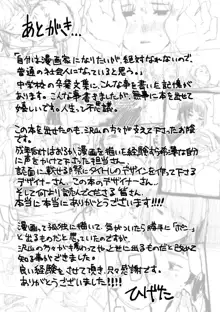 あとがき…
「自分は漫画家になりたいが、絶対なれないので、
普通の社会人になっていると思う。」
中学校の卒業文集に、こんな事を書いた記憶が
あります。こんな事書きましたが、無事に本を出せて
嬉しいです。人生って不思議。
この本を出せたのも、沢山の方々が支えて下さったお陰
です。
成年 はおろか漫画を描いた経験すら 自分
に声をかけて下さった担当さん、
誌面に載せる際にタイトルのデザインを作って下さる
デザイナーさん、この本のデザイナーさん、
そして何より読んで下さる皆さん、
本当に本当にありがとうございます!!!!
漫画って孤独に描いて、気がついたら勝手に「ポンッ」
と出るものだと思っていたのですが、
沢山の方々が関わってやっと世に出るものだと
知る事ができました。
良い経験をさせて頂き、只々感謝です。
ありがとうございました!!!!
ひげなた